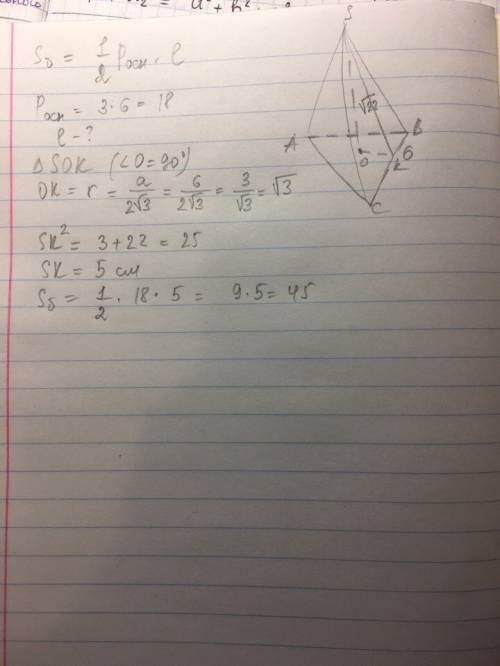 S
S_δ = 1/2 P_осн · l
P_осн = 3·6 = 18
l - ?
△SOK (∠O = 90°)
OK = r = a/2√3 = 6/2√3 = 3/√3 = √3
SK² = 3 + 22 = 25
SK = 5 см
S_δ = 1/2 · 18 · 5 = 9·5 = 45
√22
A
B
O
6
C